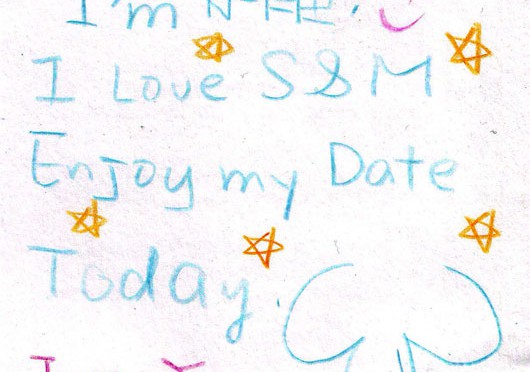 I'm
I Love S&M
Enjoy my Date
Today.